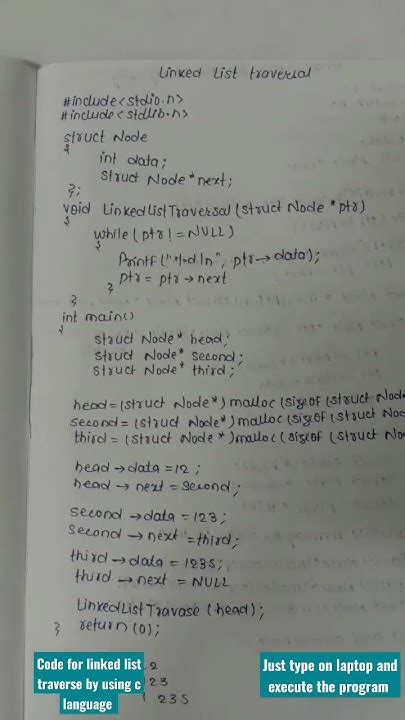 Linked List traversal
#include<stdio.h>
#include<stdlib.h>
struct Node
{
int data;
struct Node *next;
};
void LinkedListTraversal (struct Node *ptr)
{
while (ptr != NULL)
{
Printf ("%d\n", ptr→data);
ptr = ptr → next
}
}
int main()
{
struct Node* head;
struct Node* second;
struct Node* third;
head=(struct Node*) malloc (sizeof (struct Node
second = (struct Node*) malloc (sizeof (struct Nod
third = (struct Node *) malloc (sizeof (struct No
head → data =12 ;
head → next = second;
second →data = 123;
second → next = third;
third → data = 1235;
third → next = NULL
LinkedListTravase (head);
return (0);
}
2
23
235
Code for linked list
traverse by using c
language
Just type on laptop and
execute the program